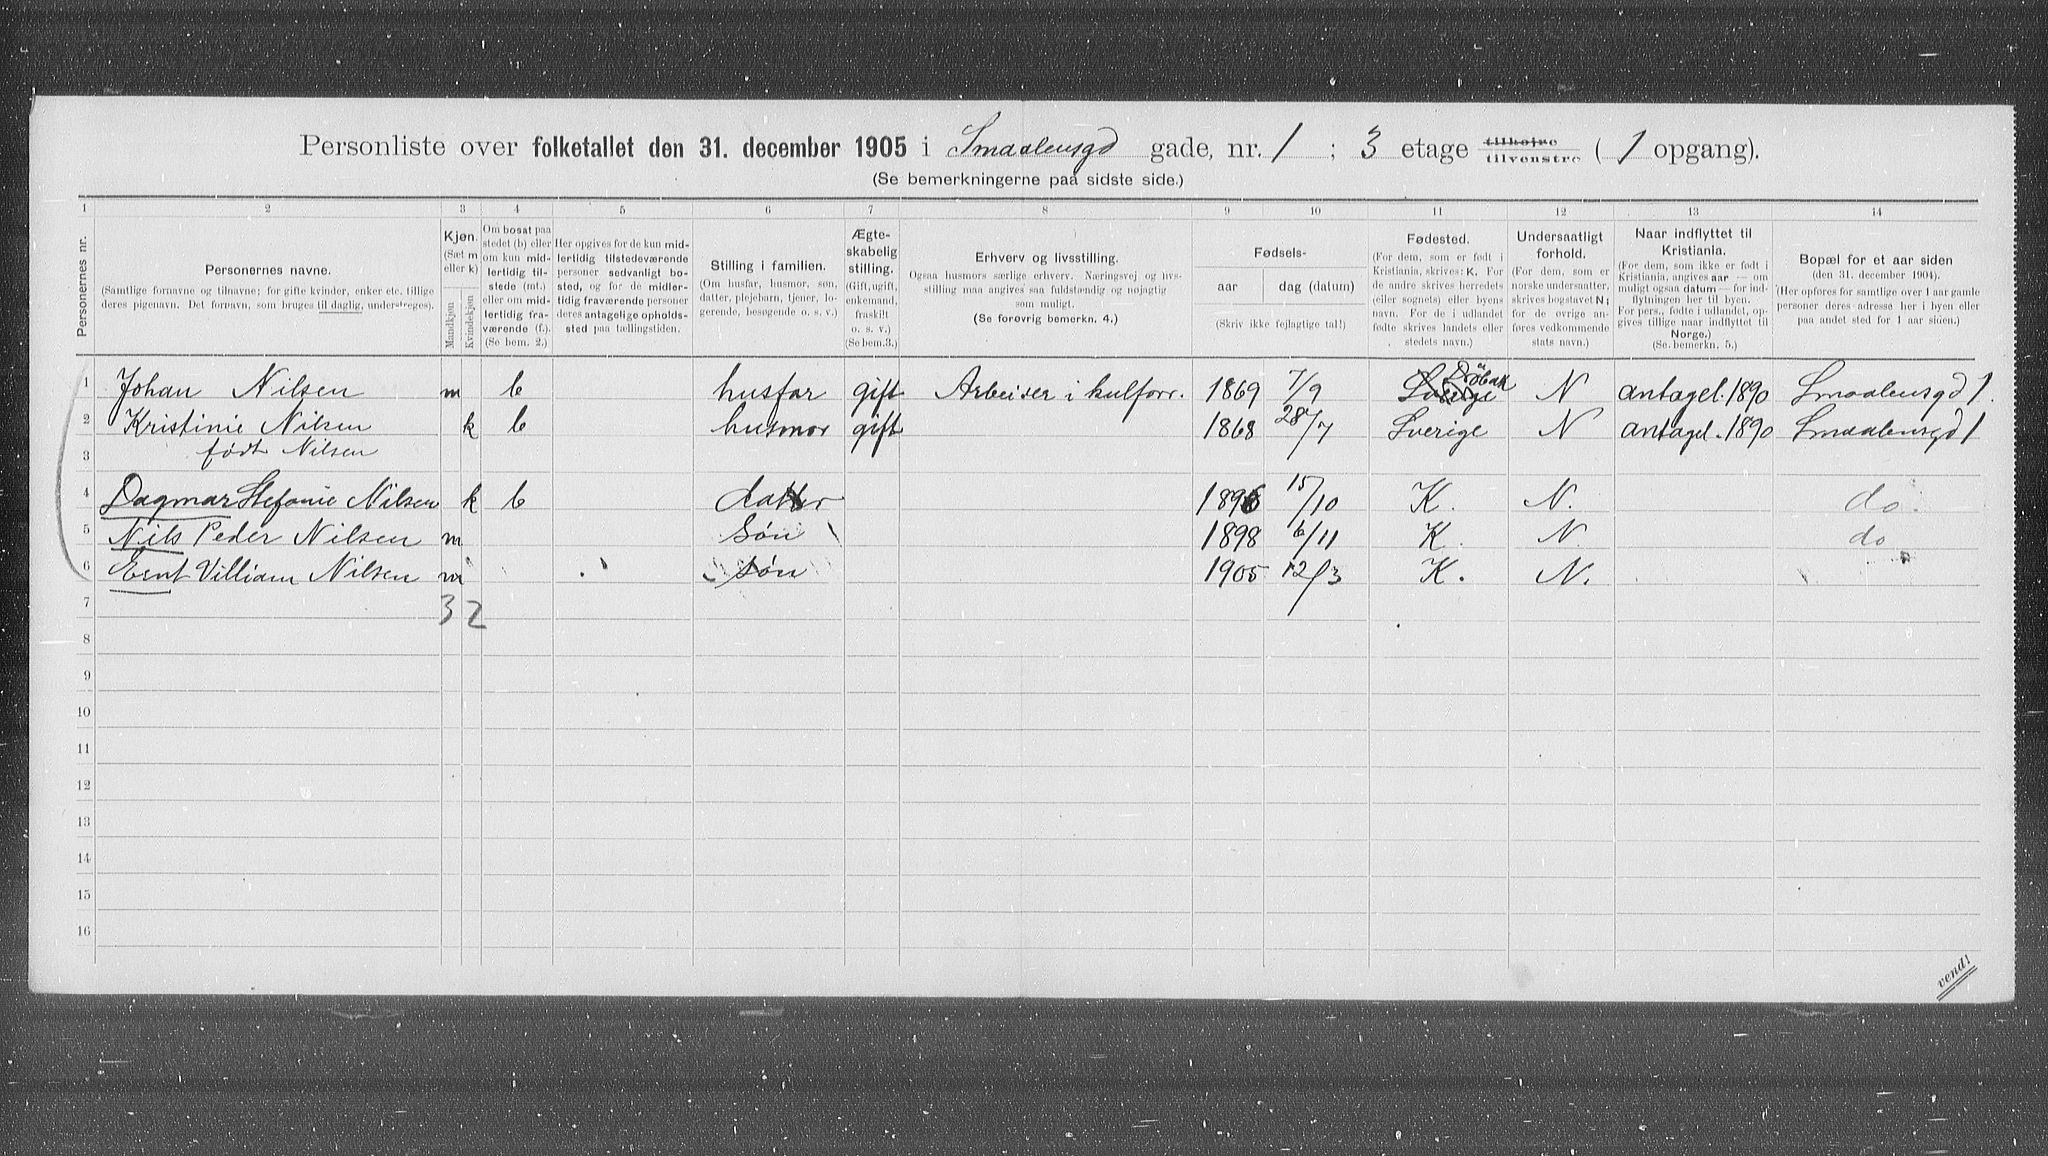 Personliste over folketallet den 31. december 1905 i Smaalensgd gade, nr. 1 ; 3 etage tilhøire tilvenstre ( 1 opgang).
(Se bemerkningerne paa sidste side.)
1 2 3 4 5 6 7 8 9 10 11 12 13 14
Personernes nr.
Personernes navne.
(Samtlige fornavne og tilnavne; for gifte kvinder, enker etc. tillige
deres pigenavn. Det fornavn, som bruges til daglig, understreges).
Kjøn.
(Sæt m
eller k)
Mandkjøn
Kvindekjøn
Om bosat paa
stedet (b) eller
om kun mid-
lertidig til-
stede (mt.)
eller om mid-
lertidig fra-
værende (f.).
(Se bem. 2.)
Her opgives for de kun mid-
lertidig tilstedeværende
personer sedvanligt bo-
sted, og for de midler-
tidig fraværende personer
deres antagelige opholds-
sted paa tællingstiden.
Stilling i familien.
(Om husfar, husmor, søn,
datter, plejebarn, tjener, lo-
gerende, besøgende o. s. v.)
Ægte-
skabelig
stilling.
(Gift, ugift,
enkemand,
fraskilt
o. s. v.)
(Se bem.3.)
Erhverv og livsstilling.
Ogsaa husmors særlige erhverv. Næringsvej og livs-
stilling maa angives saa fuldstændig og nøjagtig
som muligt.
(Se forøvrig bemerkn. 4.)
Fødsels-
aar dag (datum)
(Skriv ikke fejlagtige tal!)
Fødested.
(For dem, som er født i
Kristiania, skrives: K. For
de andre skrives herredets
(eller sognets) eller byens
navn. For de i udlandet
fødte skrives landets eller
stedets navn.)
Undersaatligt
forhold.
(For dem, som er
norske undersatter,
skrives bogstavet N;
for de øvrige an-
føres vedkommende
stats navn.)
Naar indflyttet til
Kristiania.
(For dem, som ikke er født i
Kristiania, angives aar — om
muligt ogsaa datum — for ind-
flytningen her til byen.
For pers., fødte i udlandet, op-
gives tillige naar indflyttet til
Norge.)
(Se. bemerkn. 5.)
Bopæl for et aar siden
(den 31. december 1904).
(Her opføres for samtlige over 1 aar gamle
personer deres adresse her i byen eller
paa andet sted for 1 aar siden.)
1 Johan Nilsen m b husfar gift Arbeiser i kulforr. 1869 7/9 Sverige Drøbak N antagel. 1890 Smaalensgd 1.
2 Kristinie Nilsen k b husmor gift 1868 28/7 Sverige N antagel. 1890 Smaalensgd 1
3 født Nilsen
4 Dagmar Stefanie Nilsen k b datter 1896 15/10 K. N. do.
5 Nils Peder Nilsen m Søn 1898 6/11 K. N do
6 Ernt Villiam Nilsen m Søn 1905 12/3 K. N.
7 3 2
8
9
10
11
12
13
14
15
16
vend!